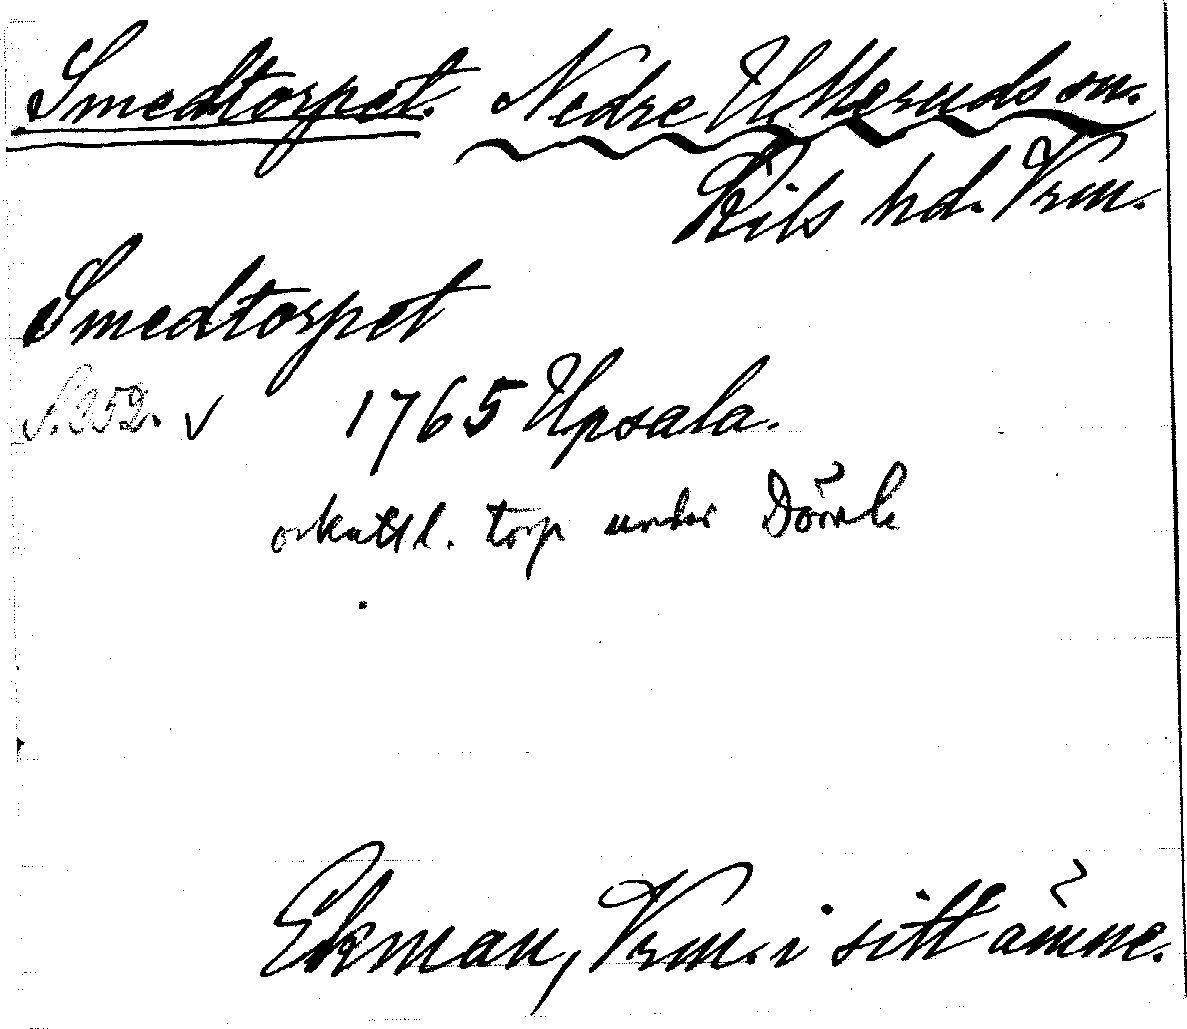 Smedtorpet. Nedre Ulleruds sn.
Kils hd. Vrm.
Smedtorpet
S. 252. v 1765 Upsala.
oskattl. torp under Dömle
Ekman, Vrm. i sitt ämne.